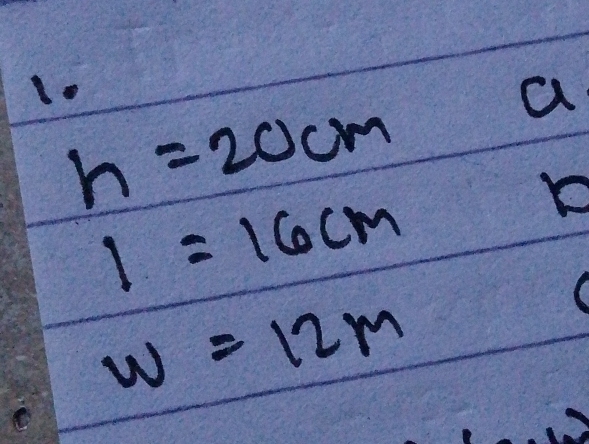 1.
h = 20cm
l = 16cm
w = 12m
a.
b